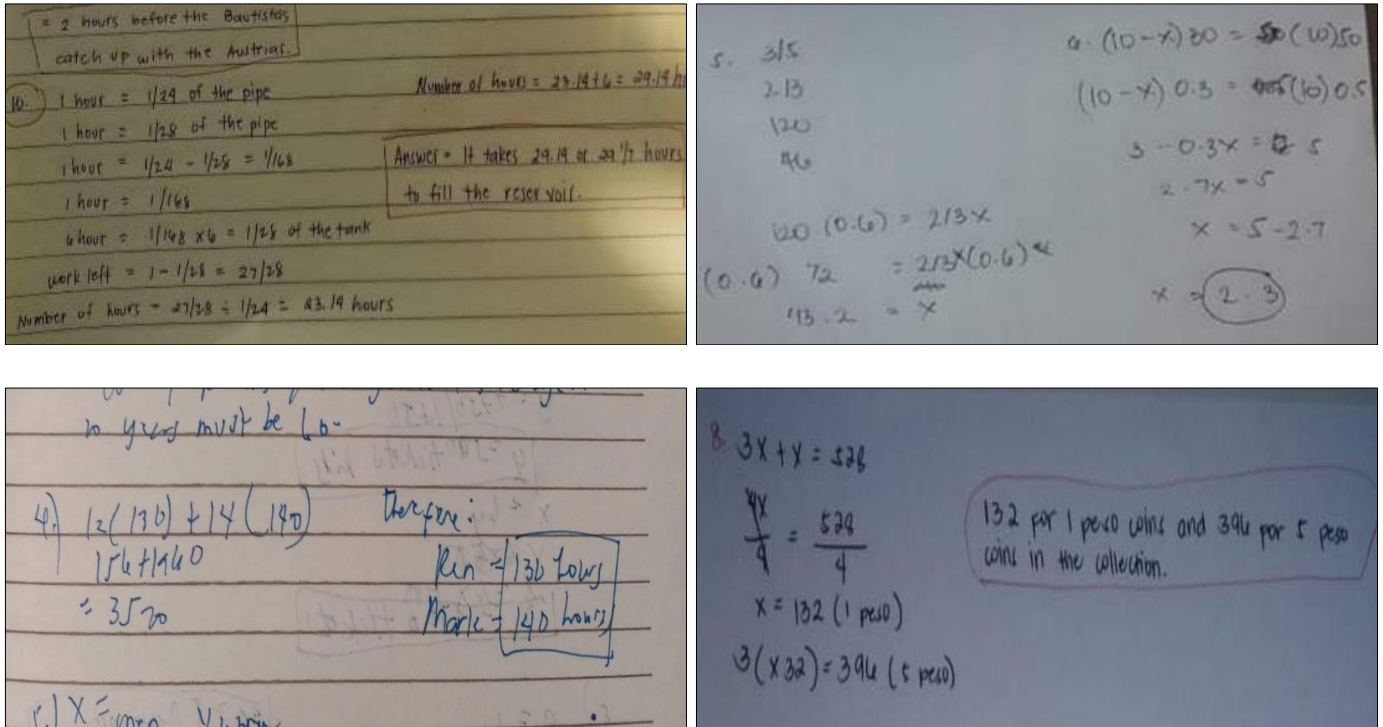 = 2 hours before the Bautistas
catch up with the Austrias.
10. 1 hour = 1/24 of the pipe
1 hour = 1/28 of the pipe
1 hour = 1/24 - 1/28 = 1/168
1 hour = 1/168
6 hour = 1/168 x 6 = 1/28 of the tank
work left = 1 - 1/28 = 27/28
Number of hours = 27/28 ÷ 1/24 = 23.14 hours
Number of hours = 23.14 + 6 = 29.14 h
Answer = It takes 29.14 or 29 1/7 hours
to fill the reservoir.
5. 3/5
2/3
120
120 (0.6) = 2/3x
(0.6) 72 = 2/3x(0.6)
43.2 = x
(10-x)30 = (10)50
(10-x) 0.3 = (10) 0.5
3 - 0.3x = 5
2.7x = 5
x = 5-2.7
x = 2.3
must be
4.) 12(130) + 14(140)
= 3520
Therefore:
Ken = 130 hours
Mark = 140 hours
5.) X = men
8. 3x + x = 528
4x/4 = 528/4
x = 132 (1 peso)
3(x32) = 396 (5 peso)
132 for 1 peso coins and 396 for 5 peso
coins in the collection.